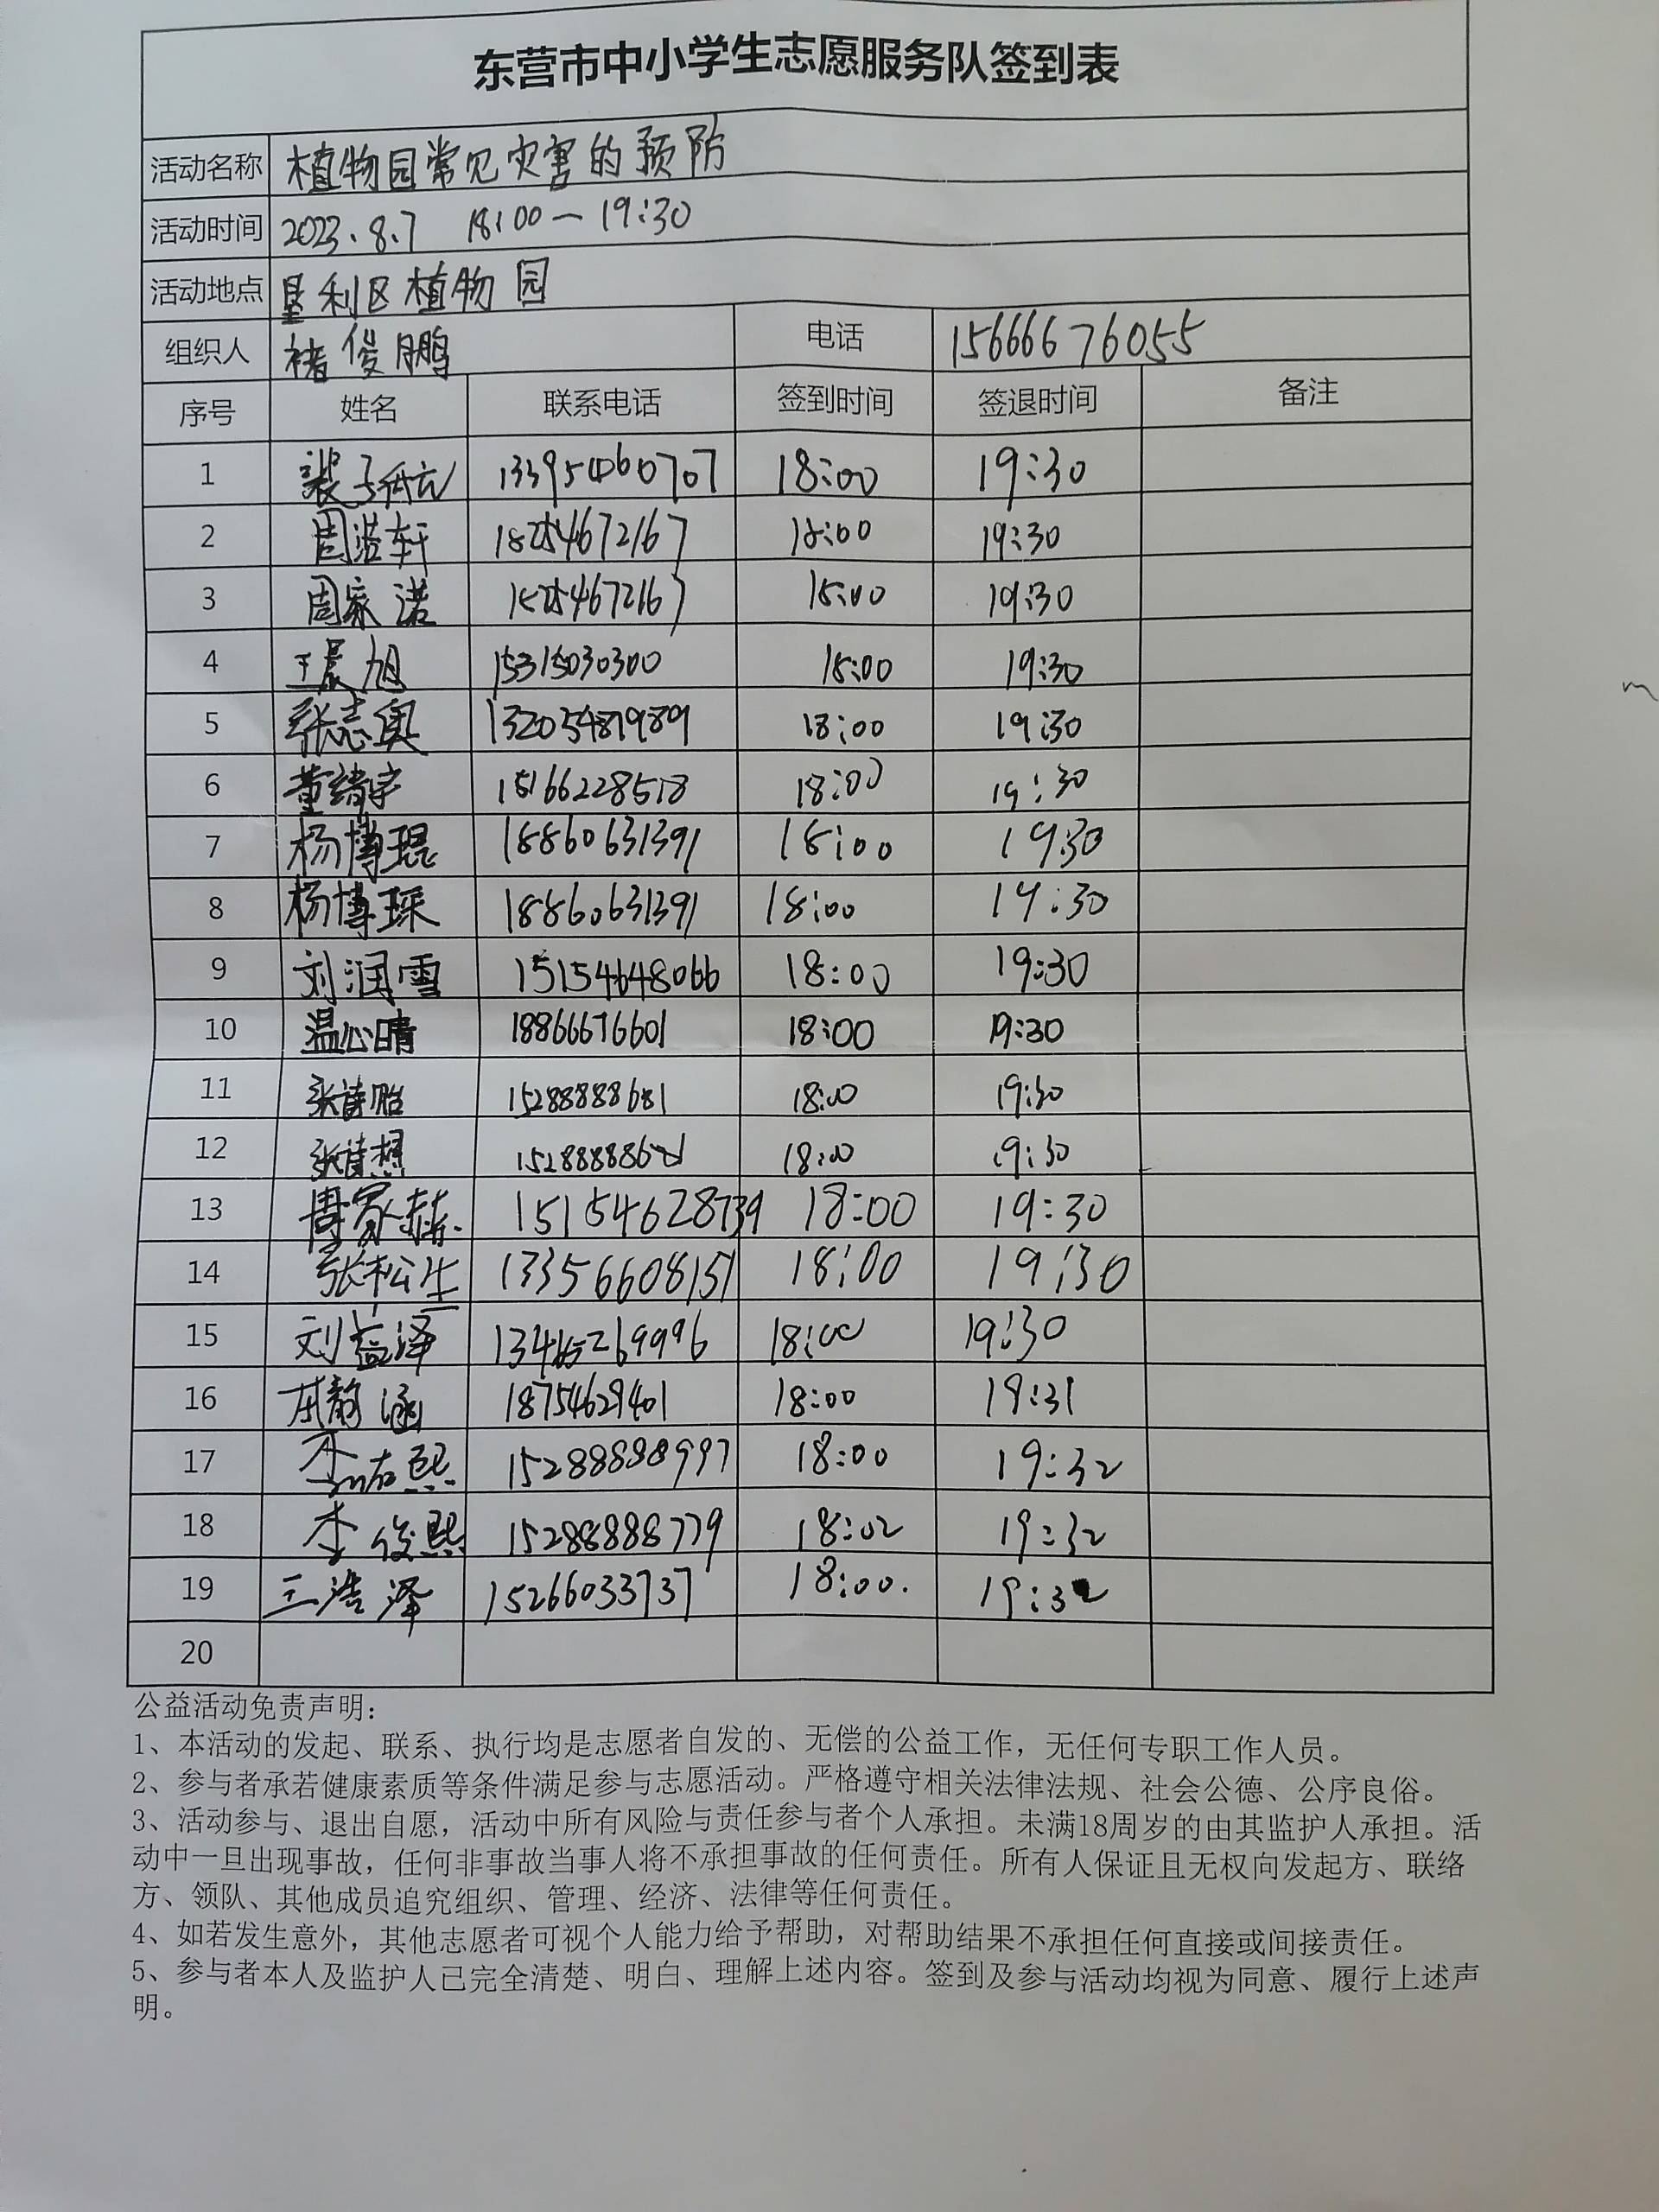 东营市中小学生志愿服务队签到表
活动名称 植物园常见灾害的预防
活动时间 2023.8.7 18:00—19:30
活动地点 垦利区植物园
组织人 褚俊鹏 电话 15666676055
序号 姓名 联系电话 签到时间 签退时间 备注
1 裴子航 13395460707 18:00 19:30
2 周滢轩 18254672167 18:00 19:30
3 周家诺 18254672167 18:00 19:30
4 王晨旭 15315030300 18:00 19:30
5 张志奥 13205487989 18:00 19:30
6 董绪宇 15166228518 18:00 19:30
7 杨博琨 18860631391 18:00 19:30
8 杨博琛 18860631391 18:00 19:30
9 刘润雪 15154648066 18:00 19:30
10 温心晴 18866676601 18:00 19:30
11 张诗贻 15288888681 18:00 19:30
12 张诗想 15288888681 18:00 19:30
13 周家赫 15154628739 18:00 19:30
14 张松生 13356608151 18:00 19:30
15 刘益泽 13465269996 18:00 19:30
16 18754629401 18:00 19:31
17 李佑熙 15288888997 18:00 19:32
18 李俊熙 15288888779 18:02 19:32
19 王浩泽 15266033737 18:00. 19:32
20
公益活动免责声明：
1、本活动的发起、联系、执行均是志愿者自发的、无偿的公益工作，无任何专职工作人员。
2、参与者承若健康素质等条件满足参与志愿活动。严格遵守相关法律法规、社会公德、公序良俗。
3、活动参与、退出自愿，活动中所有风险与责任参与者个人承担。未满18周岁的由其监护人承担。活
动中一旦出现事故，任何非事故当事人将不承担事故的任何责任。所有人保证且无权向发起方、联络
方、领队、其他成员追究组织、管理、经济、法律等任何责任。
4、如若发生意外，其他志愿者可视个人能力给予帮助，对帮助结果不承担任何直接或间接责任。
5、参与者本人及监护人已完全清楚、明白、理解上述内容。签到及参与活动均视为同意、履行上述声
明。